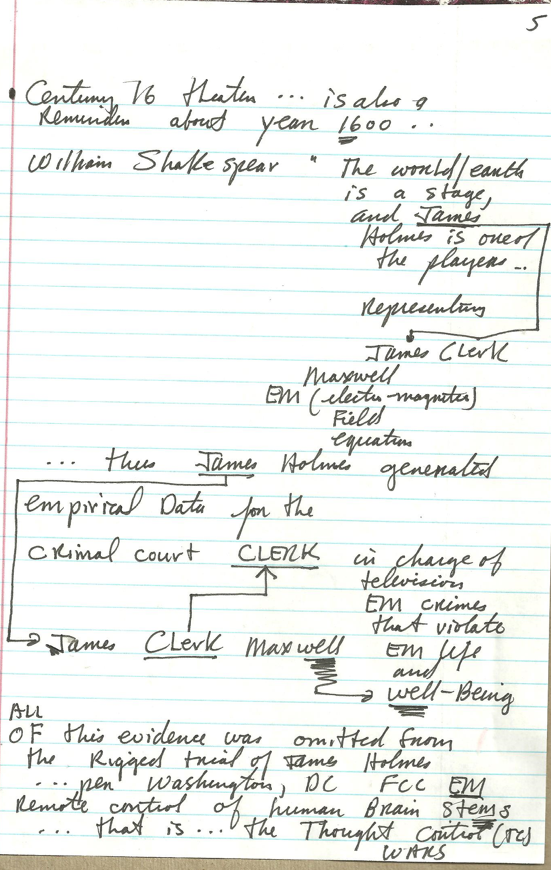 5
• Century 16 theater ... is also a
Reminder about year 1600 ..
William Shakespear " The world/earth
is a stage,
and James
Holmes is one of
the players ..
Representing
James Clerk
Maxwell
EM (electro-magnetic)
Field
equations
... thus James Holmes generated
empirical Data for the
Crimal court CLERK in charge of
television
EM crimes
that violate
James Clerk Maxwell EM life
and
well-Being
All
OF this evidence was omitted from
the Rigged trial of James Holmes
... per Washington, DC FCC EM
Remote control of human Brain stems
... that is ... the Thought Control (TC)
WARS